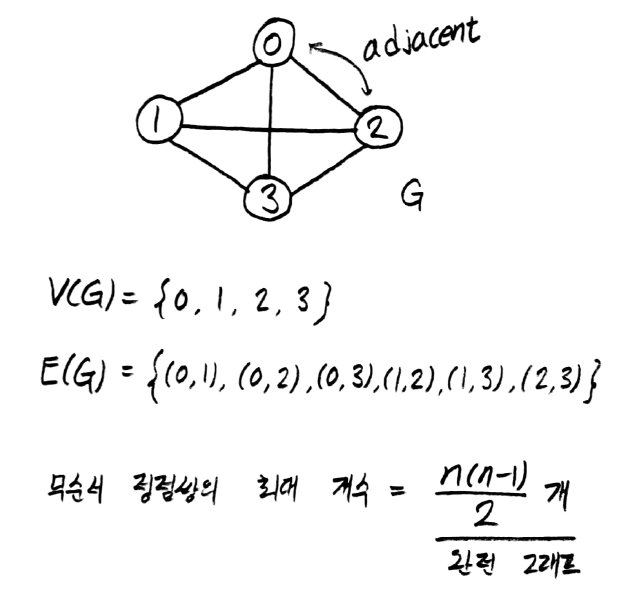 0
adjacent
1
2
3
G
V(G) = {0, 1, 2, 3}
E(G) = {(0,1), (0,2), (0,3), (1,2), (1,3), (2,3)}
무순서 정점쌍의 최대 개수 = n(n-1)/2 개
완전 그래프